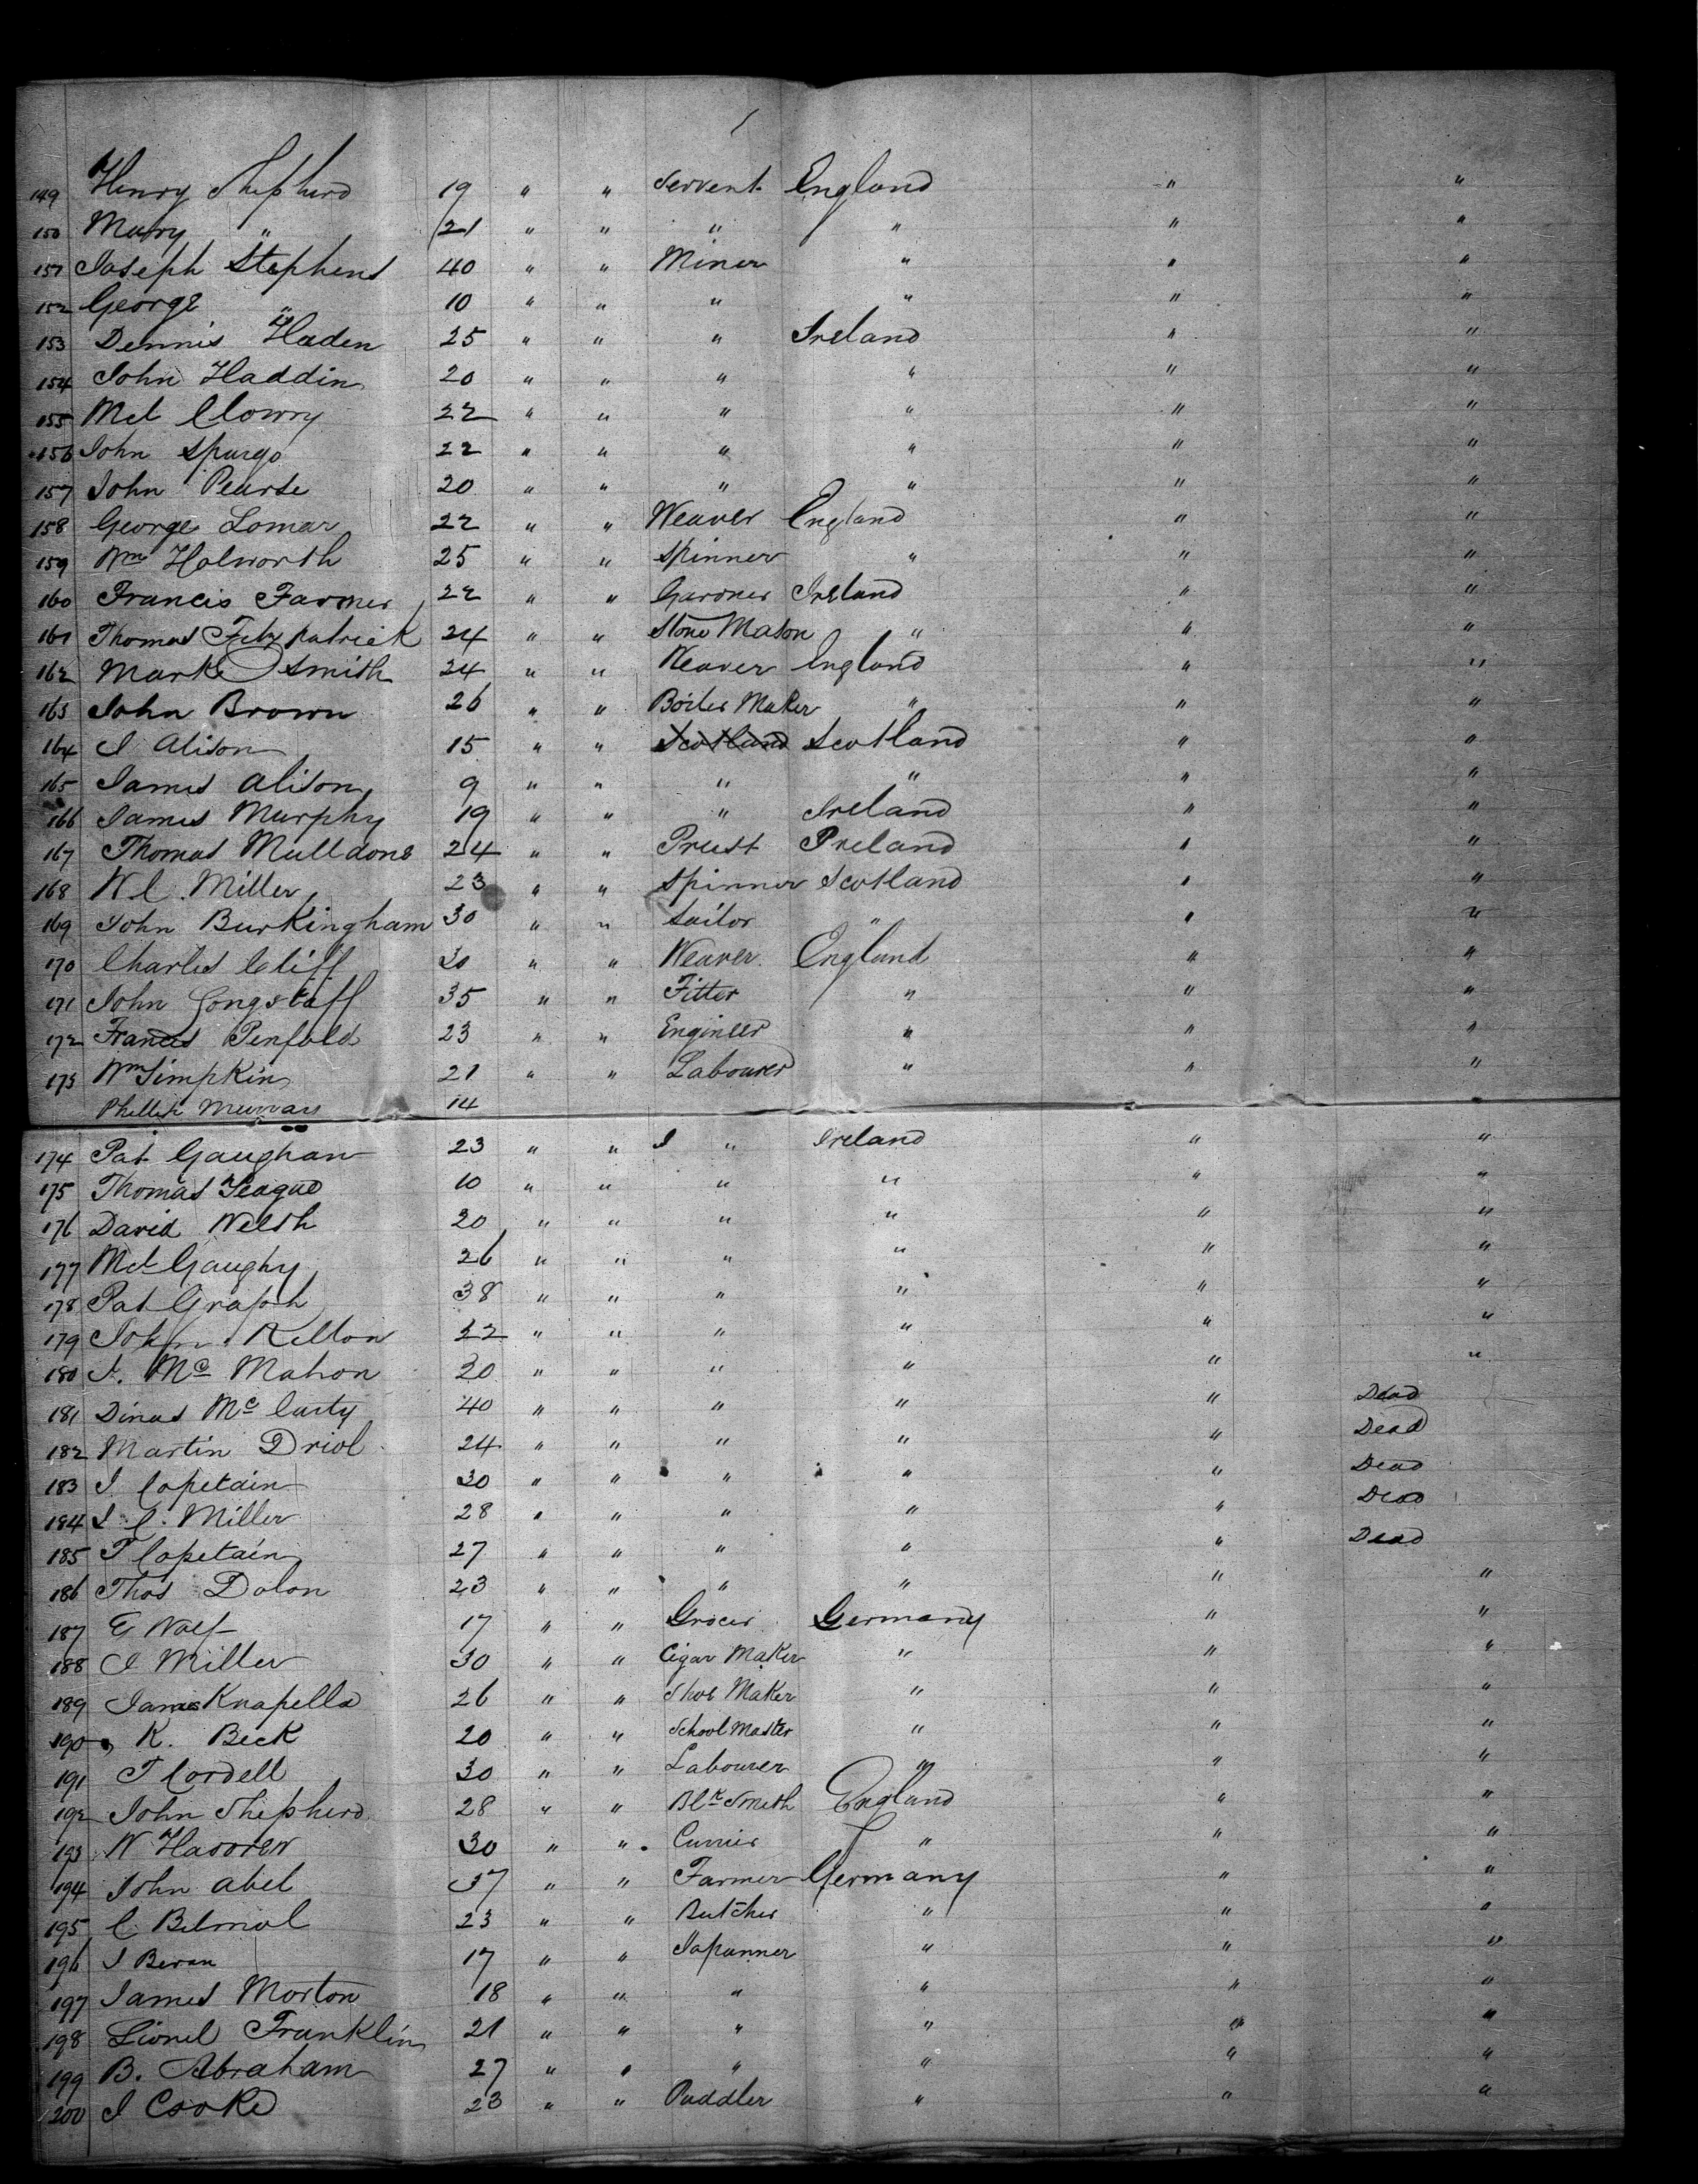 149 Henry Shepherd 19 " " Servent England " "
150 Mary " 21 " " " " " "
151 Joseph Stephens 40 " " Miner " " "
152 George " 10 " " " " " "
153 Dennis Haden 25 " " " Ireland " "
154 John Haddin 20 " " " " " "
155 Mcl Clowry 22 " " " " " "
156 John Spurgo 22 " " " " " "
157 John Pearse 20 " " " " " "
158 George Lomar 22 " " Weaver England " "
159 Wm Holworth 25 " " Spinner " " "
160 Francis Farmer 22 " " Gardner Ireland " "
161 Thomas Fitzpatrick 24 " " Stone Mason " " "
162 Mark Smith 24 " " Weaver England " "
163 John Brown 26 " " Boiler Maker " " "
164 J Alison 15 " " Scotland Scotland " "
165 James Alison 9 " " " " " "
166 James Murphy 19 " " " Ireland " "
167 Thomas Mulldone 24 " " Priest Ireland " "
168 W C. Miller 23 " " Spinner Scotland " "
169 John Burkingham 30 " " Sailor " " "
170 Charles Cliff 30 " " Weaver England " "
171 John Longstaff 35 " " Fitter " " "
172 Francis Penfold 23 " " Engineer " " "
173 Wm Simpkin 21 " " Labourer " " "
Phillip Murray 14
174 Pat Gaughan 23 " " " Ireland " "
175 Thomas Teague 10 " " " " " "
176 David Welsh 20 " " " " " "
177 Mcl Gaughy 26 " " " " " "
178 Pat 38 " " " " " "
179 John Kelton 22 " " " " " "
180 J. Mc Mahon 20 " " " " " "
181 Dinas Mc Carty 40 " " " " " Dead
182 Martin Driol 24 " " " " " Dead
183 J Copetain 30 " " " " " Dead
184 J C. Miller 28 " " " " " Dead
185 T Copetain 27 " " " " " Dead
186 Thos Dolon 23 " " " " " "
187 E Wolf 17 " " Grocer Germany " "
188 J Miller 30 " " Cigar Maker " " "
189 James Knapella 26 " " Shoe Maker " " "
190 K. Beck 20 " " School Master " " "
191 T Cordell 30 " " Labourer " " "
192 John Shepherd 28 " " Blk Smith England " "
193 W 30 " " Currier " " "
194 John Abel 37 " " Farmer Germany " "
195 C Belmol 23 " " Butcher " " "
196 J Bevan 17 " " Japanner " " "
197 James Morton 18 " " " " " "
198 Lionel Franklin 21 " " " " " "
199 B. Abraham 27 " " " " " "
200 J Cooke 23 " " Puddler " " "